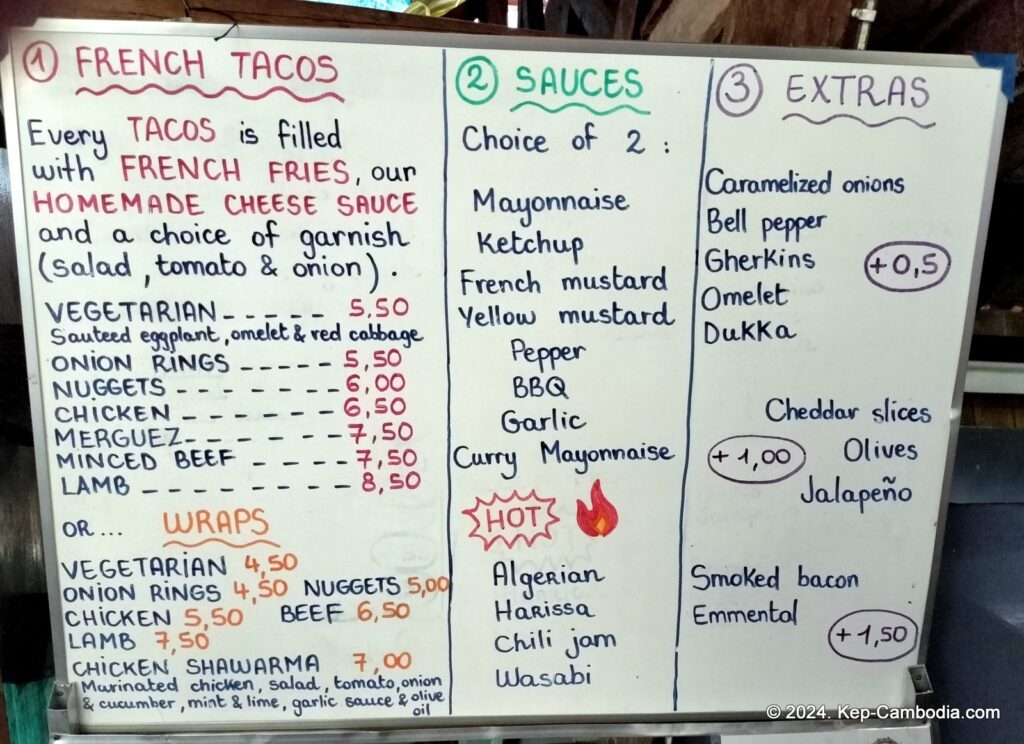 1 FRENCH TACOS
Every TACOS is filled
with FRENCH FRIES, our
HOMEMADE CHEESE SAUCE
and a choice of garnish
(salad, tomato & onion).
VEGETARIAN ----- 5.50
Sauteed eggplant, omelet & red cabbage
ONION RINGS ----- 5,50
NUGGETS ------- 6,00
CHICKEN ------- 6,50
MERGUEZ ------- 7,50
MINCED BEEF ---- 7,50
LAMB -------- 8,50
OR... WRAPS
VEGETARIAN 4,50
ONION RINGS 4,50 NUGGETS 5,00
CHICKEN 5,50 BEEF 6,50
LAMB 7,50
CHICKEN SHAWARMA 7,00
Marinated chicken, salad, tomato, onion
& cucumber, mint & lime, garlic sauce & olive
oil
2 SAUCES
Choice of 2:
Mayonnaise
Ketchup
French mustard
Yellow mustard
Pepper
BBQ
Garlic
Curry Mayonnaise
HOT
Algerian
Harissa
Chili jam
Wasabi
3 EXTRAS
Caramelized onions
Bell pepper
Gherkins +0,5
Omelet
Dukka
Cheddar slices
+1,00 Olives
Jalapeño
Smoked bacon
Emmental
+1,50
© 2024. Kep-Cambodia.com